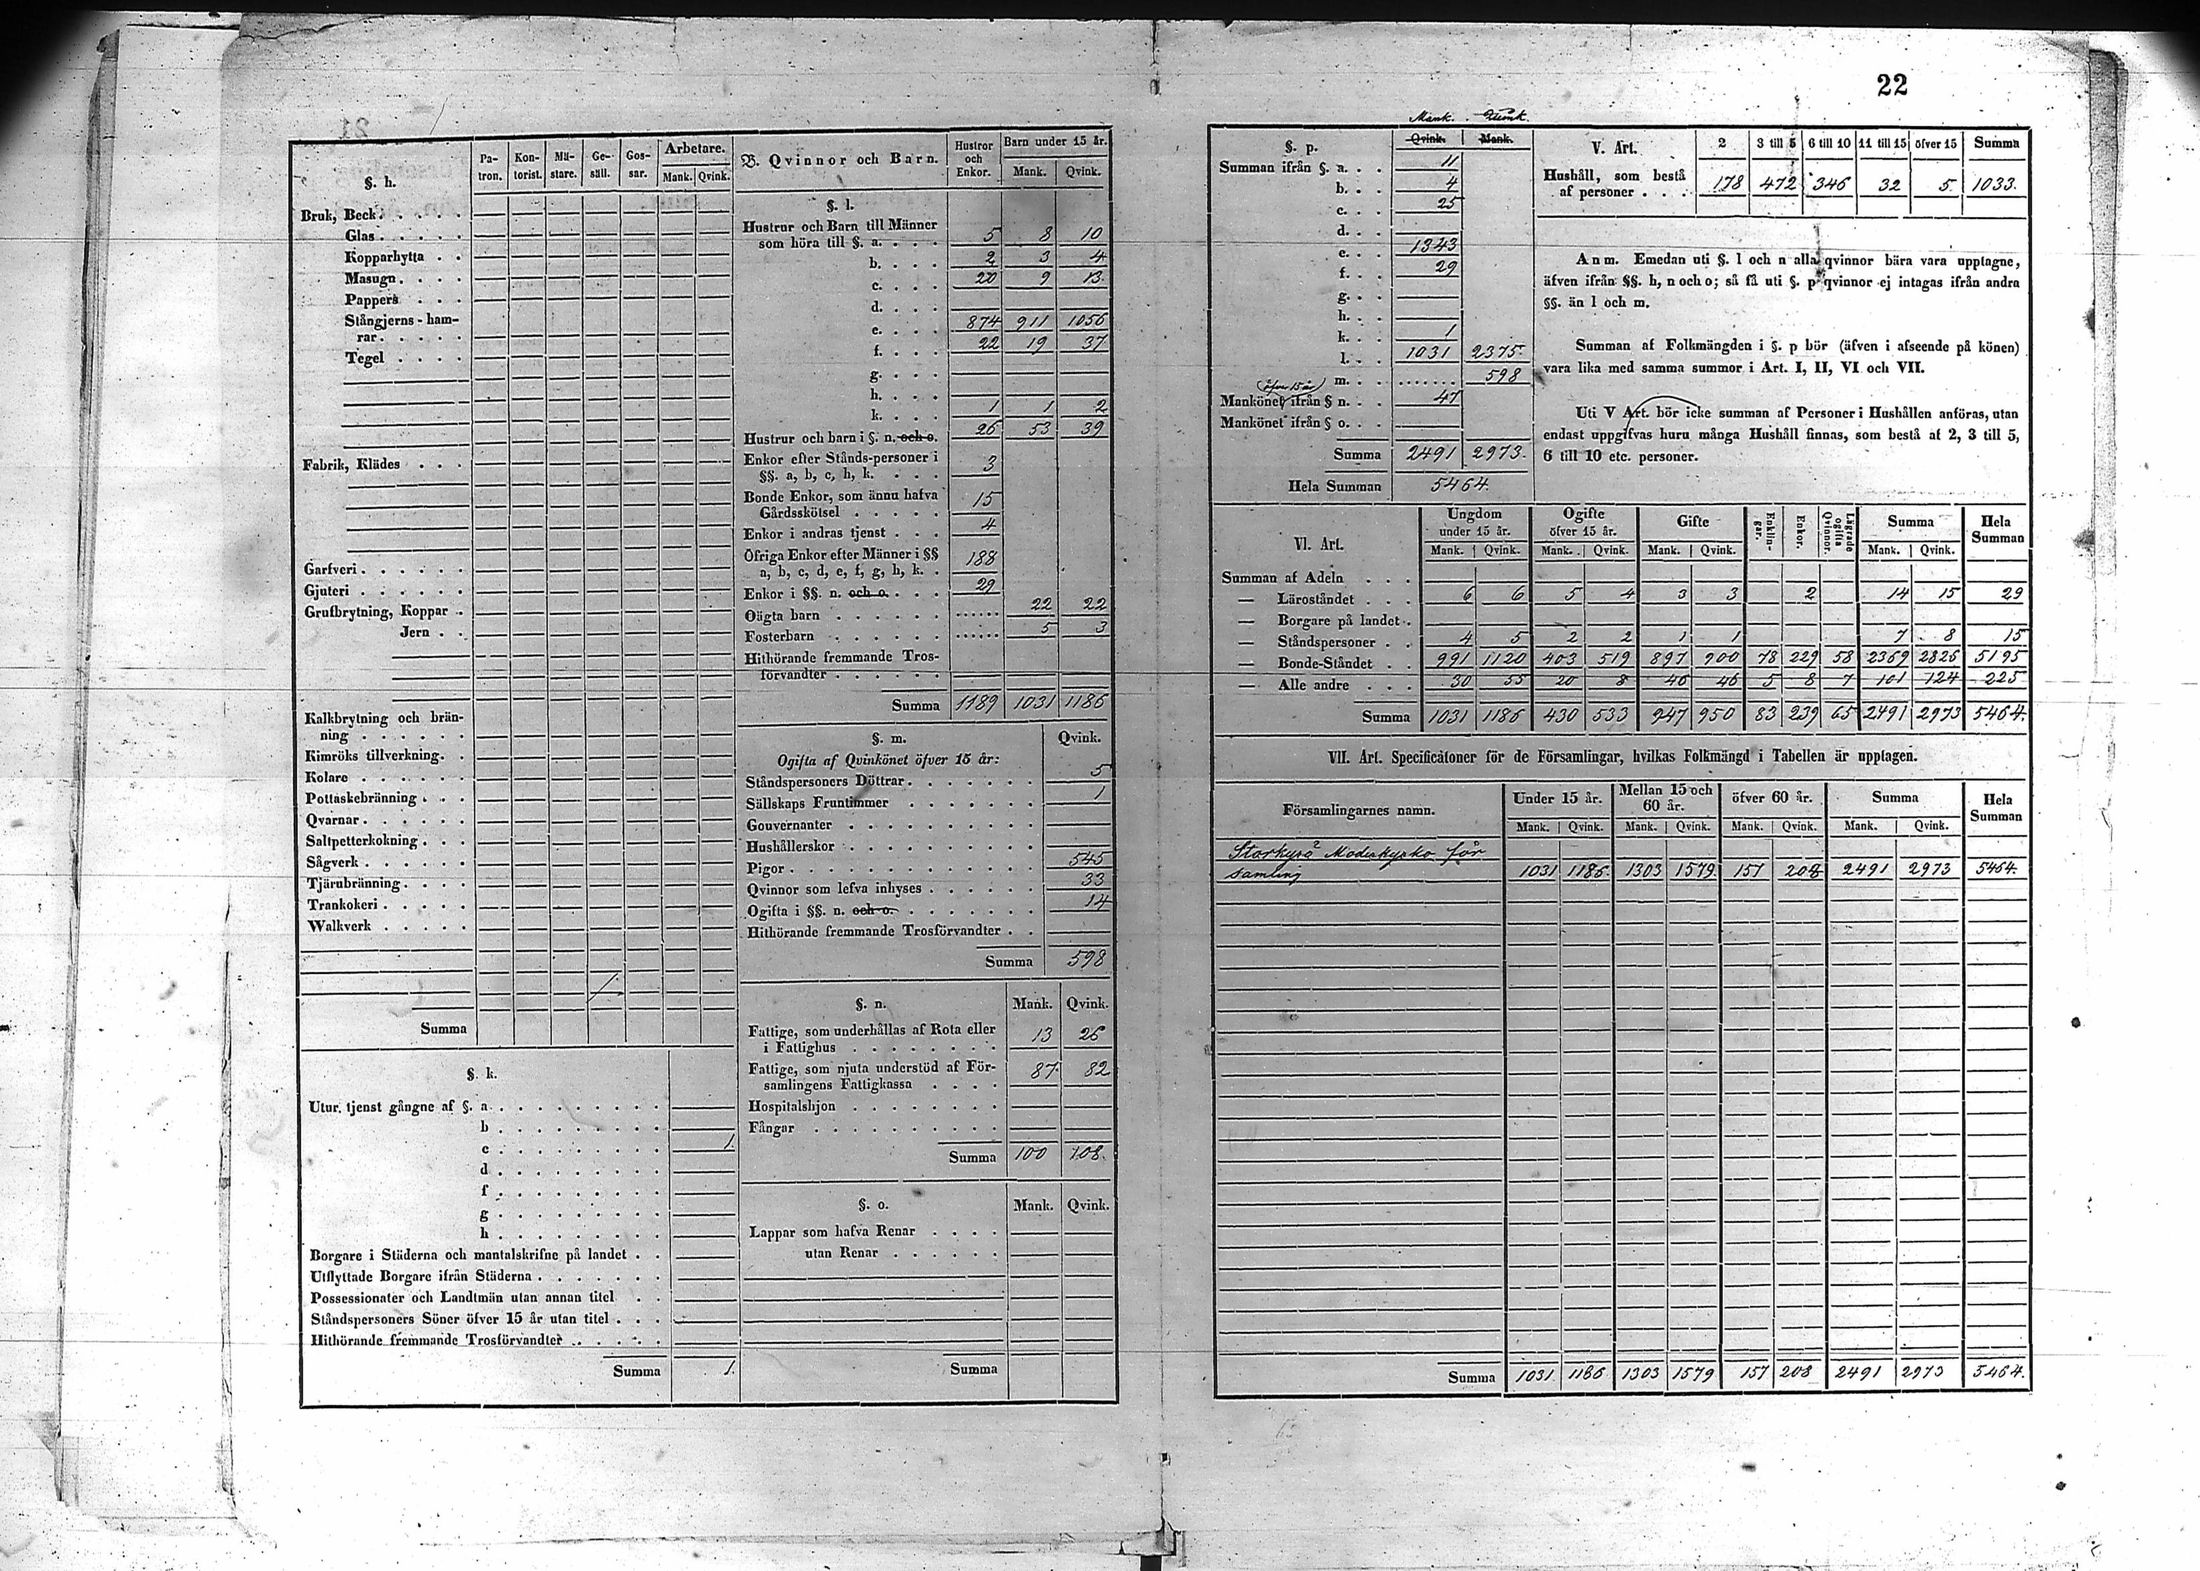 22
§. h.
Pa-tron. Kon-torist. Mä-stare. Ge-säll. Gos-sar. Arbetare. Mank. Qvink.
Bruk, Beck
Glas
Kopparhytta
Masugn
Pappers
Stångjerns-ham-
rar
Tegel
Fabrik, Klädes
Garfveri
Gjuteri
Grufbrytning, Koppar
Jern
Kalkbrytning och brän-
ning
Kimröks tillverkning
Kolare
Pottaskebränning
Qvarnar
Saltpetterkokning
Sågverk
Tjärubränning
Trankokeri
Walkverk
Summa
§. k.
Utur tjenst gångne af §. a
b
c 1.
d
f
g
h
Borgare i Städerna och mantalskrifne på landet
Utflyttade Borgare ifrån Städerna
Possessionater och Landtmän utan annan titel
Ståndspersoners Söner öfver 15 år utan titel
Hithörande fremmande Trosförvandter
Summa 1.
B. Qvinnor och Barn. Hustror och Enkor. Barn under 15 år. Mank. Qvink.
§. l.
Hustrur och Barn till Männer
som höra till §. a. 5 8 10
b. 2 3 4
c. 20 9 13
d.
e. 874 911 1056
f. 22 19 37
g.
h.
k. 1 1 2
Hustrur och barn i §. n. och o. 26 53 39
Enkor efter Stånds-personer i
§§. a, b, c, h, k. 3
Bonde Enkor, som ännu hafva
Gårdsskötsel 15
Enkor i andras tjenst 4
Öfriga Enkor efter Männer i §§
a, b, c, d, e, f, g, h, k. 188
Enkor i §§. n. och o. 29
Oägta barn 22 22
Fosterbarn 5 3
Hithörande fremmande Tros-
förvandter
Summa 1189 1031 1186
§. m. Qvink.
Ogifta af Qvinkönet öfver 15 år:
Ståndspersoners Döttrar 5
Sällskaps Fruntimmer 1
Gouvernanter
Hushållerskor
Pigor 545
Qvinnor som lefva inhyses 33
Ogifta i §§. n. och o. 14
Hithörande fremmande Trosförvandter
Summa 598
§. n. Mank. Qvink.
Fattige, som underhållas af Rota eller
i Fattighus 13 26
Fattige, som njuta understöd af För-
samlingens Fattigkassa 87 82
Hospitalshjon
Fångar
Summa 100 108.
§. o. Mank. Qvink.
Lappar som hafva Renar
utan Renar
Summa
Mank. Qvink.
§. p. Qvink. Mank.
Summan ifrån §. a. 11
b. 4
c. 25
d.
e. 1343
f. 29
g.
h.
k. 1
l. 1031 2375.
m. 598
(öfver 15 år)
Mankönet ifrån § n. 47
Mankönet ifrån § o.
Summa 2491 2973.
Hela Summan 5464.
V. Art. 2 3 till 5 6 till 10 11 till 15 öfver 15 Summa
Hushåll, som bestå
af personer 178 472 346 32 5. 1033.
Anm. Emedan uti §. l och n alla qvinnor bära vara upptagne,
äfven ifrån §§. h, n och o; så få uti §. p qvinnor ej intagas ifrån andra
§§. än l och m.
Summan af Folkmängden i §. p bör (äfven i afseende på könen)
vara lika med samma summor i Art. I, II, VI och VII.
Uti V Art. bör icke summan af Personer i Hushållen anföras, utan
endast uppgifvas huru många Hushåll finnas, som bestå af 2, 3 till 5,
6 till 10 etc. personer.
VI. Art. Ungdom under 15 år. Ogifte öfver 15 år. Gifte Enklin-gar. Enkor. Lägrade ogifta Qvinnor. Summa Hela Summan
Mank. Qvink. Mank. Qvink. Mank. Qvink. Mank. Qvink.
Summan af Adeln
— Läroståndet 6 6 5 4 3 3 2 14 15 29
— Borgare på landet
— Ståndspersoner 4 5 2 2 1 1 7 8 15
— Bonde-Ståndet 991 1120 403 519 897 900 78 229 58 2369 2826 5195
— Alle andre 30 55 20 8 46 46 5 8 7 101 124 225
Summa 1031 1186 430 533 947 950 83 239 65 2491 2973 5464.
VII. Art. Specificatoner för de Församlingar, hvilkas Folkmängd i Tabellen är upptagen.
Församlingarnes namn. Under 15 år. Mellan 15 och 60 år. öfver 60 år. Summa Hela Summan
Mank. Qvink. Mank. Qvink. Mank. Qvink. Mank. Qvink.
Storkyrö Moderkyrko för
samling 1031 1186. 1303 1579 157 208 2491 2973 5464.
Summa 1031 1186 1303 1579 157 208 2491 2973 5464.